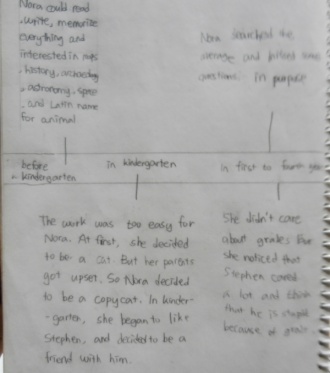 Nora could read
, write, memorize
everything and
interested in maps
, history, archaeology
, astronomy, space
, and Latin name
for animal
Nora searched the
average and picked some
questions. in purpose
before
kindergarten
in kindergarten
in first to fourth
The work was too easy for
Nora. At first, she decided
to be a cat. But her parents
got upset. So Nora decided
to be a copycat. In kinder-
-garten, she began to like
Stephen, and decided to be a
friend with him.
She didn't care
about grades. But
she noticed that
Stephen cared
a lot and think
that he is stupid
because of grade.